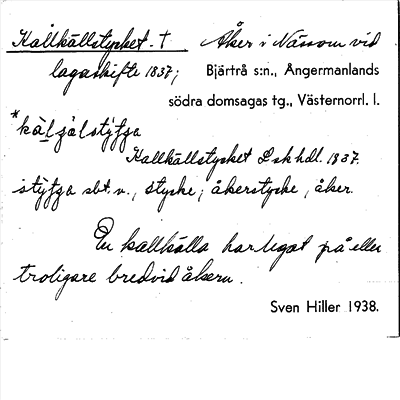 Kallkällstycket. T. Åker i Nässom vid
lagaskifte 1837; Bjärtrå s:n., Ångermanlands
södra domsagas tg., Västernorrl. l.
*kàl̨jälstýʃʒa
Kallkällstycket Lsk hdl. 1837.
stýʃʒa sbt. n., stycke; åkerstycke, åker.
En kallkälla har legat på eller
troligare bredvid åkern.
Sven Hiller 1938.